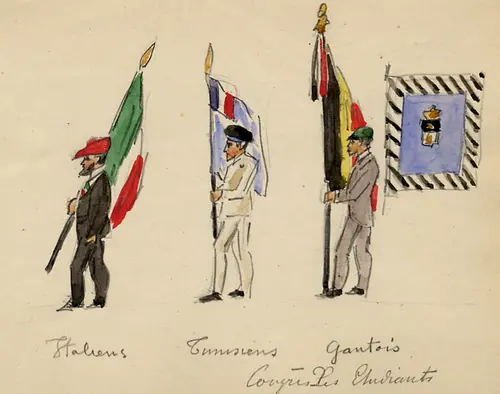 Italiens Tunisiens Gantois
Congrès des Etudiants